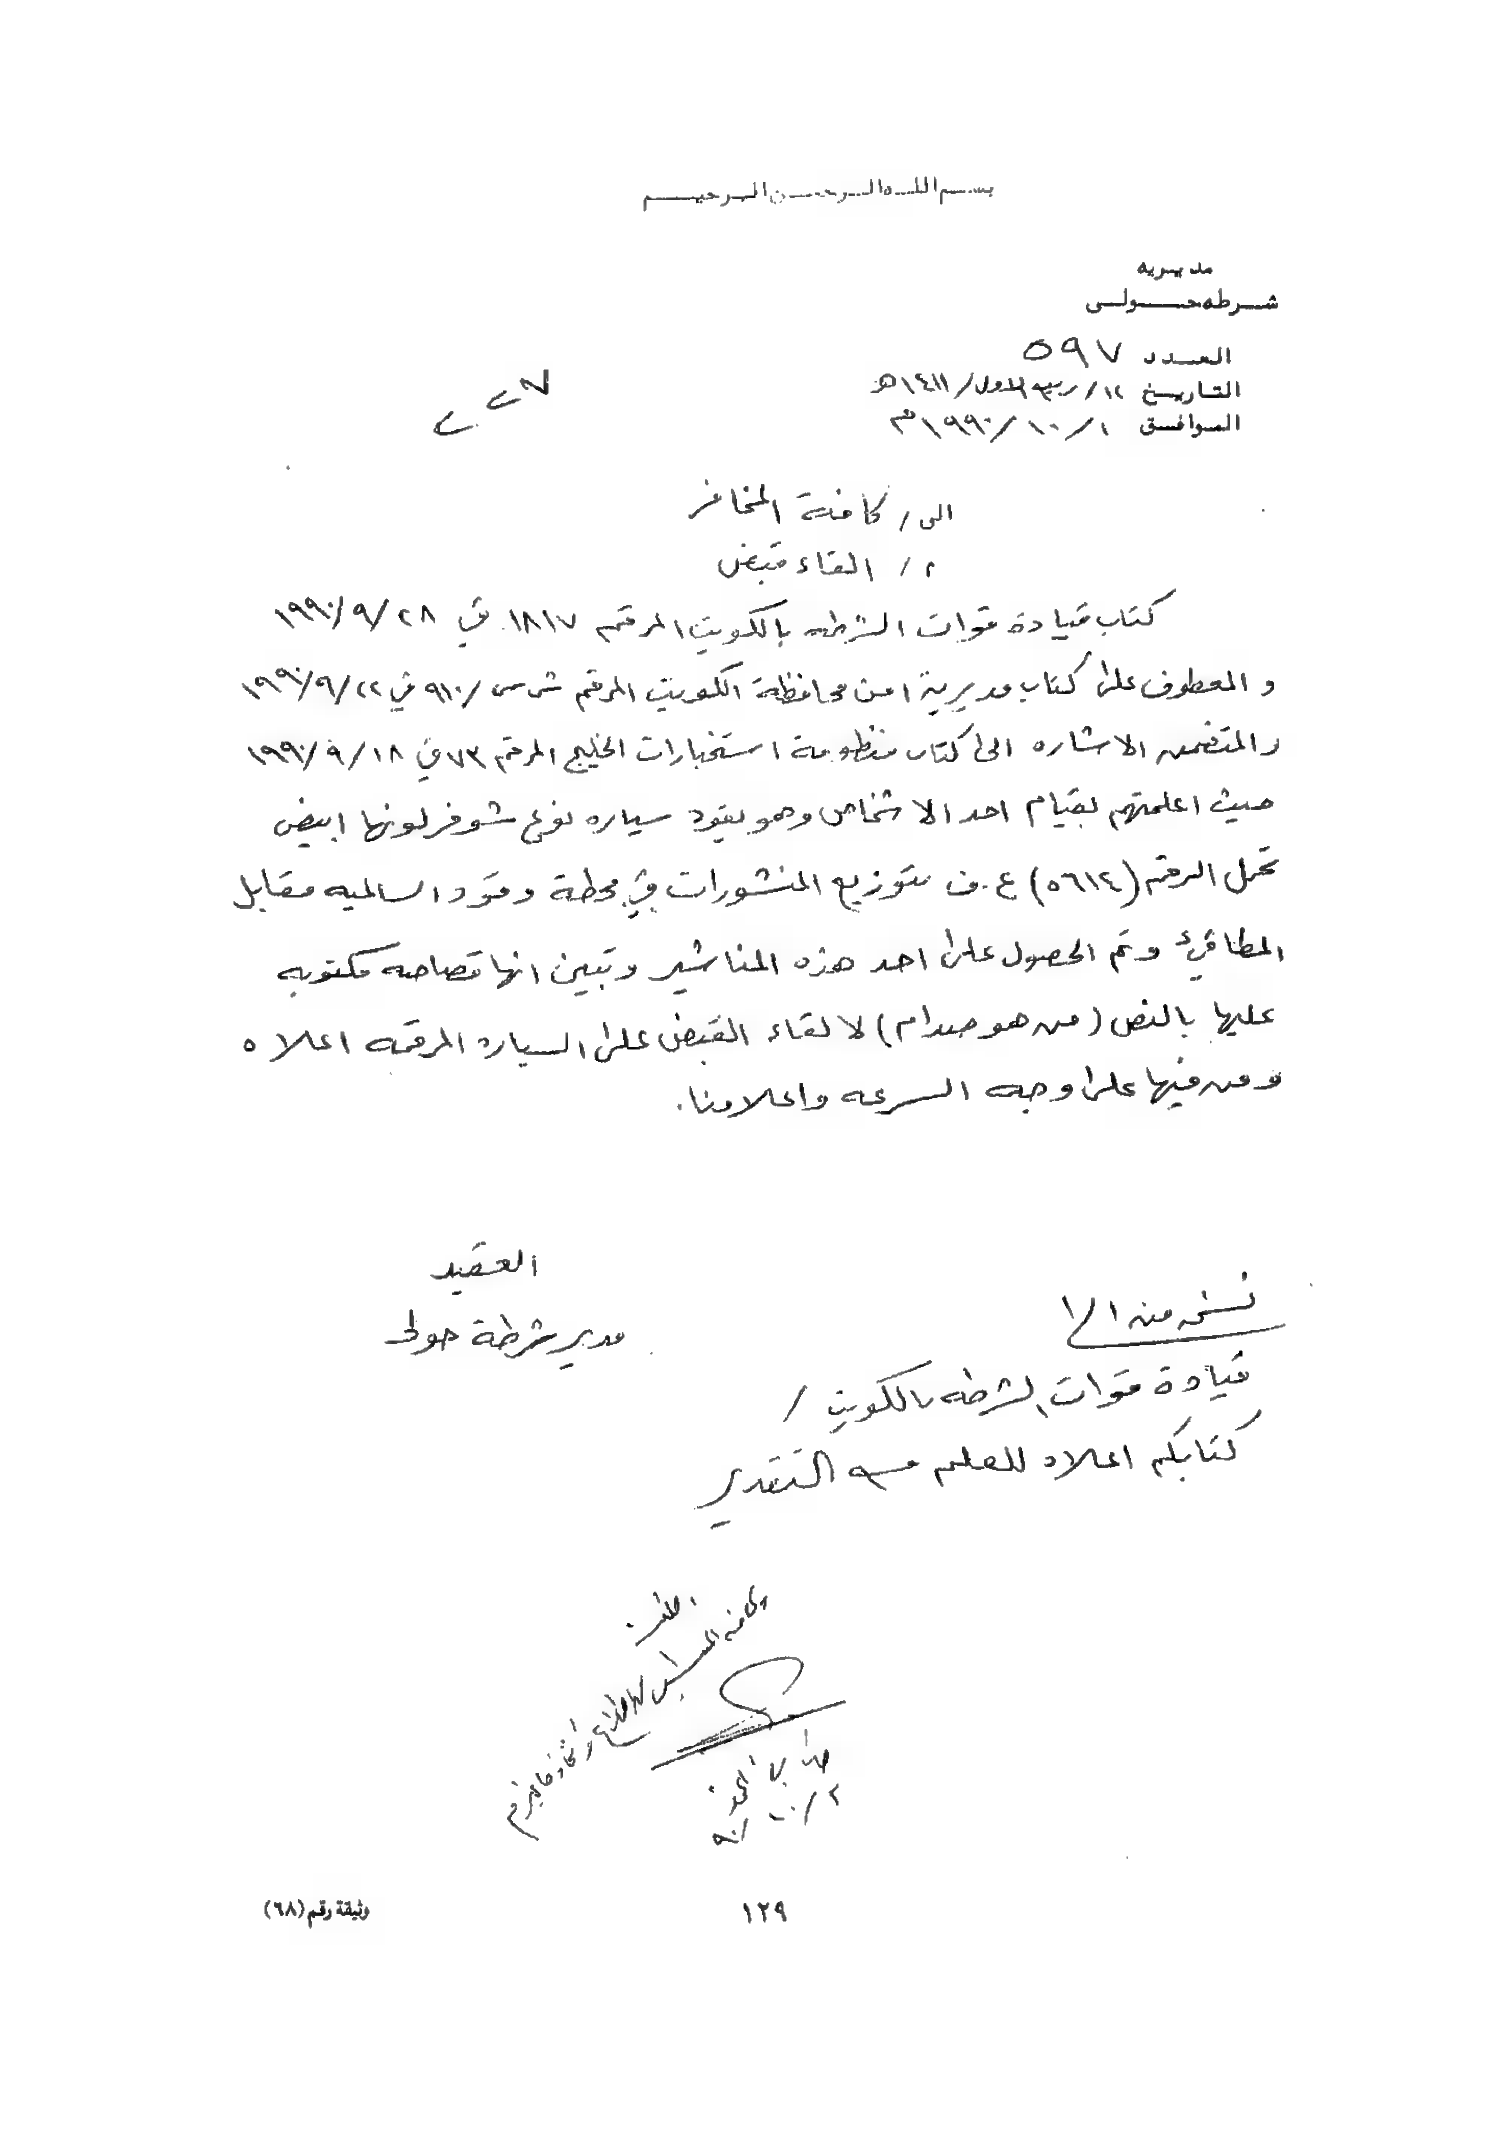 بسم الله الرحمن الرحيم
مديريه
شرطه حولي
العدد ٥٩٧
التاريخ ١٢/ربيع الاول/١٤١١هـ
الموافق ١/١٠/١٩٩٠م
الى/ كافة المخافر
م/ القاء قبض
كتاب قيادة قوات الشرطه بالكويت المرقم ١٨١٧ في ٢٨/٩/١٩٩٠
والمعطوف على كتاب مديرية امن محافظة الكويت المرقم ش س/٩١٠ في ٢٢/٩/١٩٩٠
والمتضمن الاشاره الى كتاب منظومة استخبارات الخليج المرقم ٧٣ في ١٨/٩/١٩٩٠
حيث اعلمتهم بقيام احد الاشخاص وهو يقود سياره نوع شوفر لونها ابيض
تحمل الرقم (٥٦١٢) ع.ف بتوزيع المنشورات في محطة وقود السالميه مقابل
المطافيء وتم الحصول على احد هذه المناشير وتبين انها قصاصه مكتوبه
عليها بالنص (من هو صدام) لالقاء القبض على السياره المرقمه اعلاه
ومن فيها على وجه السرعه واعلامنا.
العقيد
مدير شرطة حولي
نسخه منه الى/
قيادة قوات الشرطه بالكويت/
كتابكم اعلاه للعلم مع التقدير
٢/١٠/٩٠
١٢٩
وثيقة رقم (٦٨)